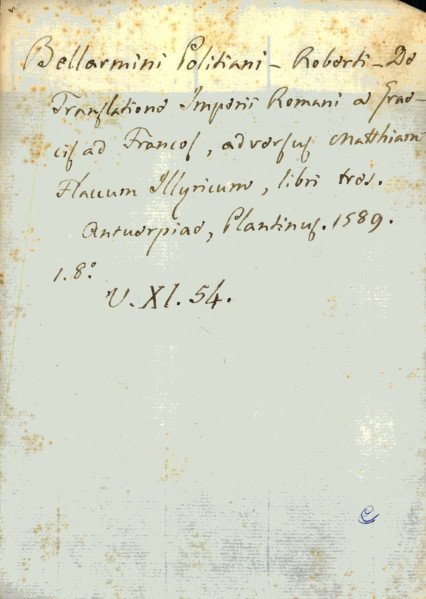 Bellarmini Politiani - Roberti - De
Translatione Imperii Romani a Grae-
cis ad Francos, adversus Matthiam
Flaccum Illyricum, libri tres.
Antuerpiae, Plantinus. 1589.
1.8.º
V. XI. 54.
C